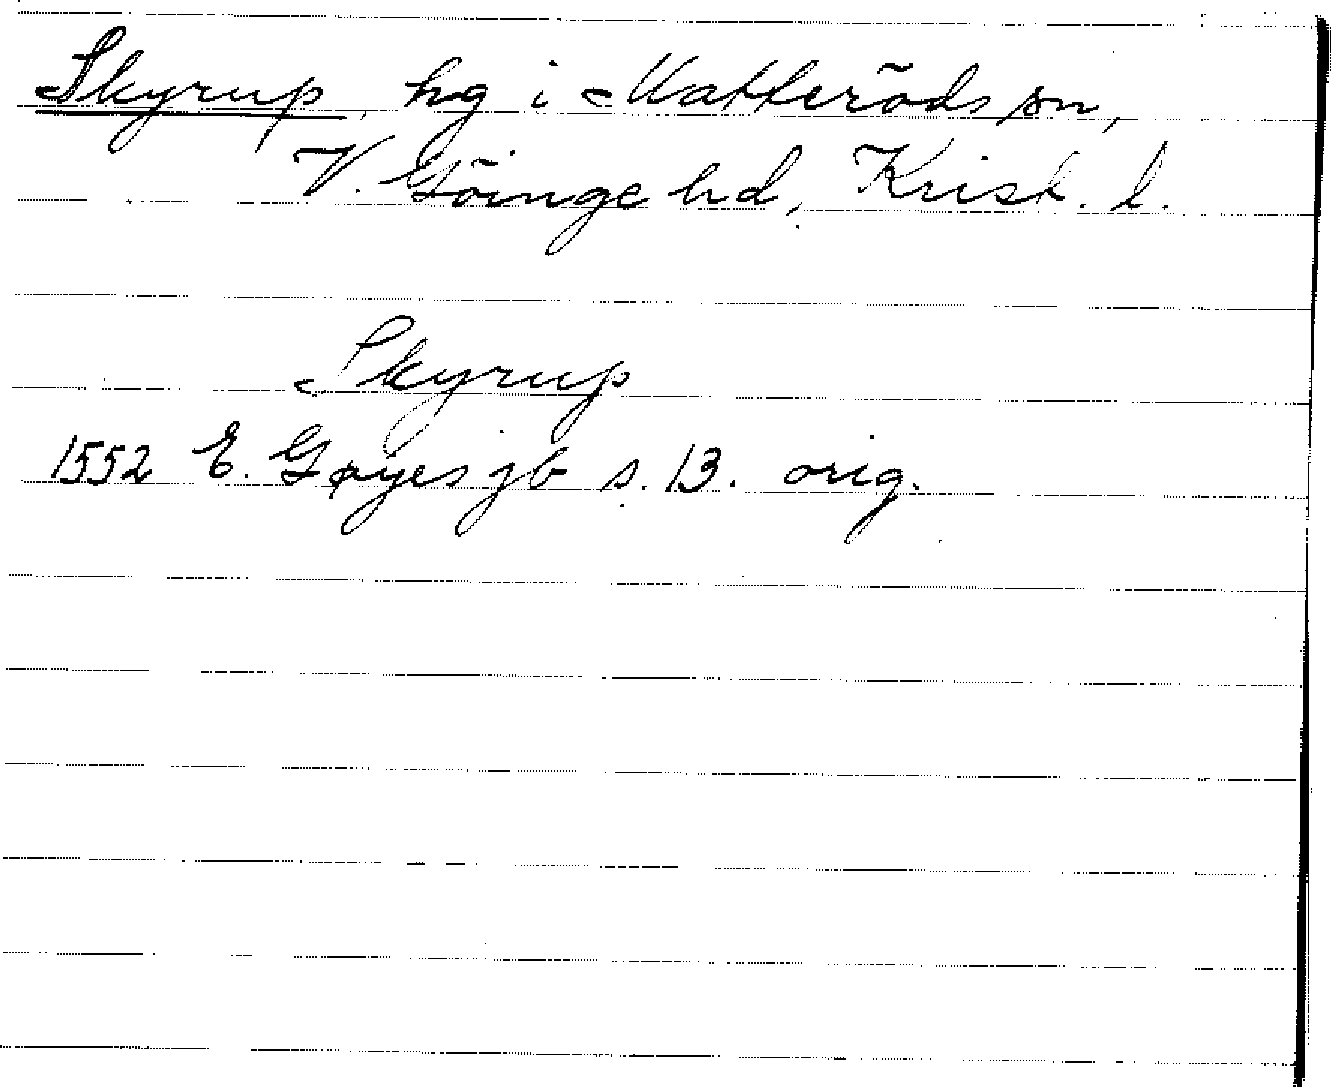 Skyrup, hg i Matteröds sn,
V. Göinge hd, Krist. l.
Skyrup
1552 E. Gøyes jb s. 13. orig.